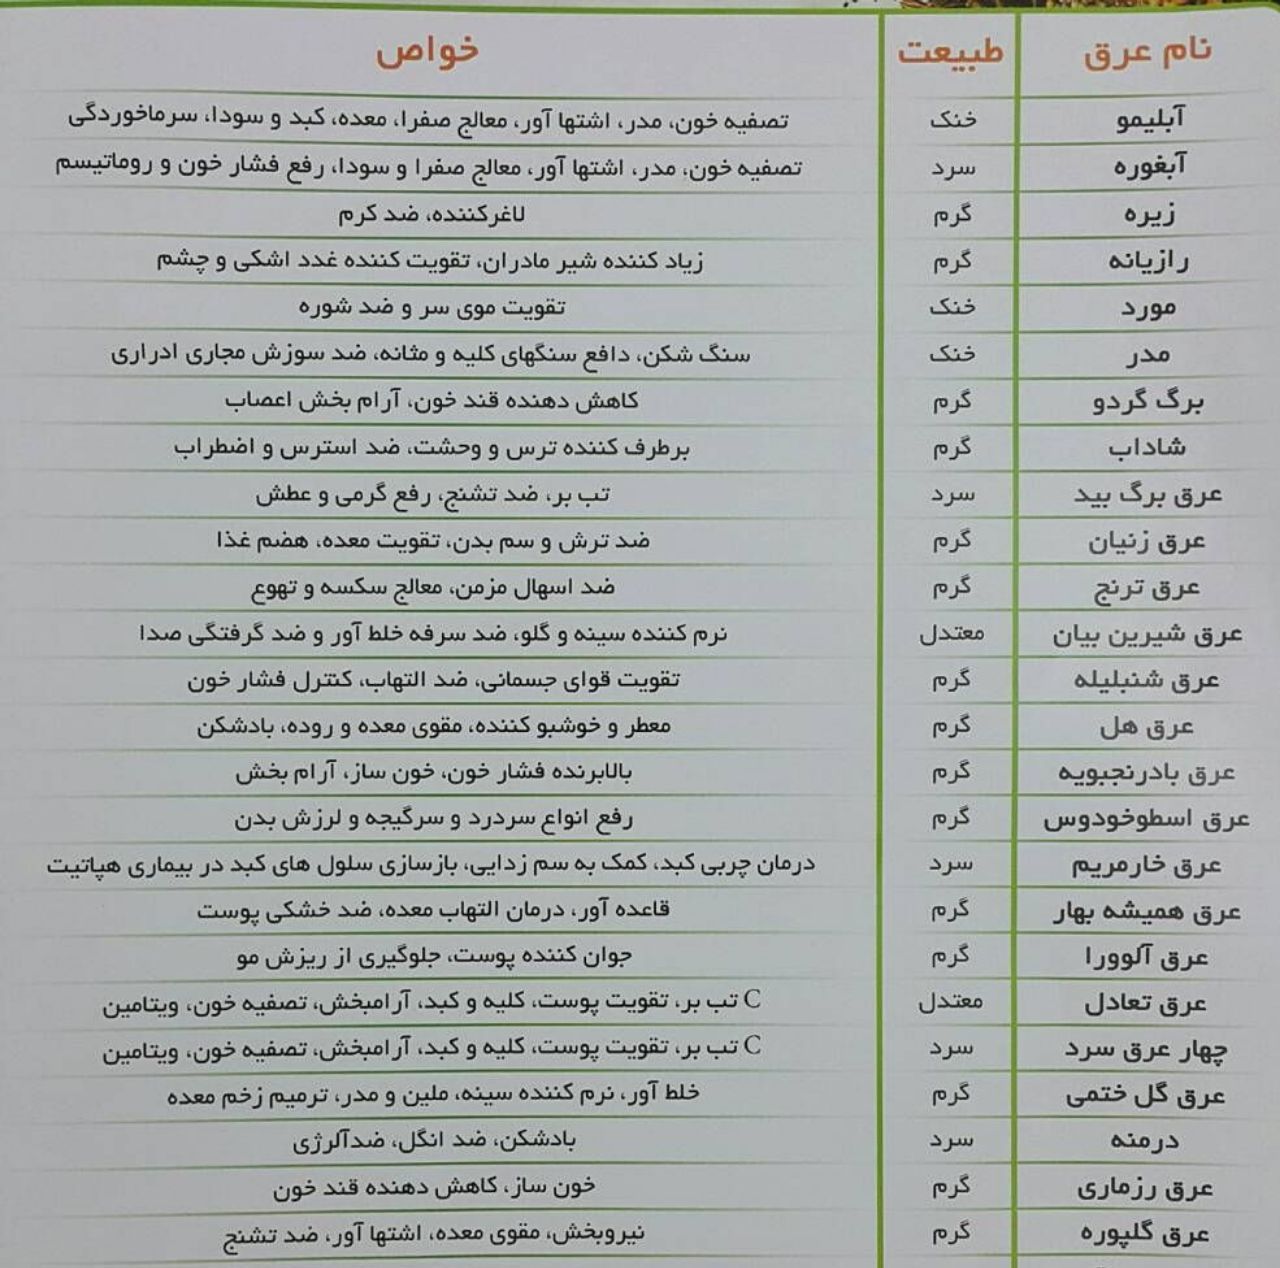 نام عرق طبیعت خواص
آبلیمو خنک تصفیه خون، مدر، اشتها آور، معالج صفرا، معده، کبد و سودا، سرماخوردگی
آبغوره سرد تصفیه خون، مدر، اشتها آور، معالج صفرا و سودا، رفع فشار خون و روماتیسم
زیره گرم لاغرکننده، ضد کرم
رازیانه گرم زیاد کننده شیر مادران، تقویت کننده غدد اشکی و چشم
مورد خنک تقویت موی سر و ضد شوره
مدر خنک سنگ شکن، دافع سنگهای کلیه و مثانه، ضد سوزش مجاری ادراری
برگ گردو گرم کاهش دهنده قند خون، آرام بخش اعصاب
شاداب گرم برطرف کننده ترس و وحشت، ضد استرس و اضطراب
عرق برگ بید سرد تب بر، ضد تشنج، رفع گرمی و عطش
عرق زنیان گرم ضد ترش و سم بدن، تقویت معده، هضم غذا
عرق ترنج گرم ضد اسهال مزمن، معالج سکسه و تهوع
عرق شیرین بیان معتدل نرم کننده سینه و گلو، ضد سرفه خلط آور و ضد گرفتگی صدا
عرق شنبلیله گرم تقویت قوای جسمانی، ضد التهاب، کنترل فشار خون
عرق هل گرم معطر و خوشبو کننده، مقوی معده و روده، بادشکن
عرق بادرنجبویه گرم بالابرنده فشار خون، خون ساز، آرام بخش
عرق اسطوخودوس گرم رفع انواع سردرد و سرگیجه و لرزش بدن
عرق خارمریم سرد درمان چربی کبد، کمک به سم زدایی، بازسازی سلول های کبد در بیماری هپاتیت
عرق همیشه بهار گرم قاعده آور، درمان التهاب معده، ضد خشکی پوست
عرق آلوورا گرم جوان کننده پوست، جلوگیری از ریزش مو
عرق تعادل معتدل C تب بر، تقویت پوست، کلیه و کبد، آرامبخش، تصفیه خون، ویتامین
چهار عرق سرد سرد C تب بر، تقویت پوست، کلیه و کبد، آرامبخش، تصفیه خون، ویتامین
عرق گل ختمی گرم خلط آور، نرم کننده سینه، ملین و مدر، ترمیم زخم معده
درمنه سرد بادشکن، ضد انگل، ضدآلرژی
عرق رزماری گرم خون ساز، کاهش دهنده قند خون
عرق گلپوره گرم نیروبخش، مقوی معده، اشتها آور، ضد تشنج